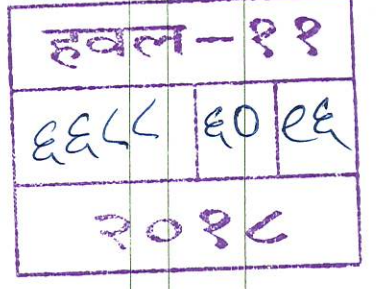 हवल-११
६६८८ ६० ९६
२०१८